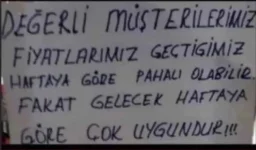 DEĞERLİ MÜŞTERİLERİMİZ
FİYATLARIMIZ GEÇTİĞİMİZ
HAFTAYA GÖRE PAHALI OLABİLİR
FAKAT GELECEK HAFTAYA
GÖRE ÇOK UYGUNDUR!!!